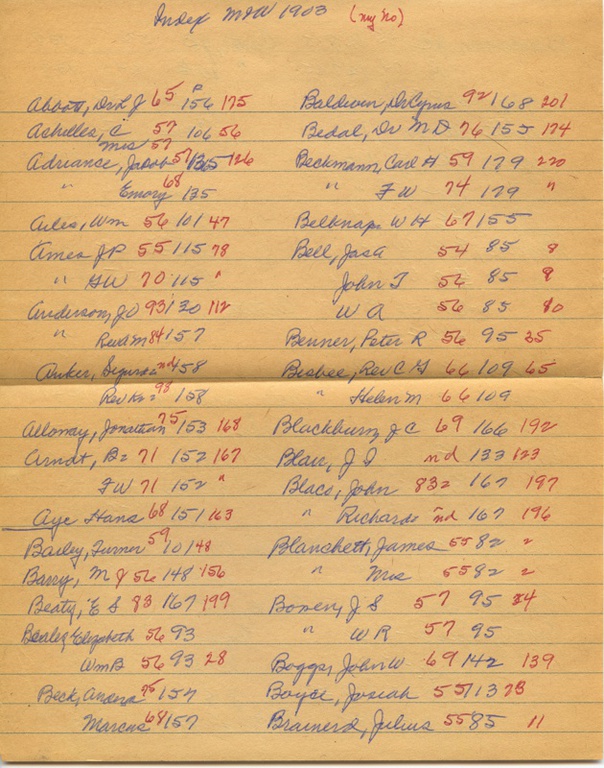 Index M&W 1903 (my no)
P
Abbott, Dr L J 65 156 175
Achilles, C 57 106 56
Mrs 57
Adriance, Jacob 57 135 126
" Emory 68 135
Ailes, Wm 56 101 47
Ames J P 55 115 78
" G W 70 115 "
Anderson, J O 93 130 112
" Revd M 84 157
Anker, nd 158
Rev 93 158
Alloway, Jonathan 75 153 168
Arndt, Bz 71 152 167
F W 71 152 "
Aye Hans 68 151 163
Bailey, Turner 59 101 48
Barry, M J 56 148 156
Beaty, E S 83 167 199
Beasley Elizabeth 56 93
Wm B 56 93 28
Beck, Anders 75 154
Marcus 68 157
Baldwin, Dr Cyrus 92 168 201
Bedal, Dr M D 76 155 174
Beckmann, Carl H 59 179 220
" F W 74 179 "
Belknap W H 67 155
Bell, Jas A 54 85 8
John T 56 85 9
W A 56 85 10
Benner, Peter R 56 95 35
Bisbee, Rev C G 66 109 65
" Helen M 66 109
Blackburn, J C 69 166 192
Blair, J I nd 133 123
Blaco, John 83? 167 197
" Richard nd 167 196
Blanchett, James 55 82 2
" Mrs 55 82 2
Bowen, J S 57 95 34
" W R 57 95
Boggs, John W 69 142 139
Boyce, Josiah 55 113 73
Brainerd, Julius 55 85 11